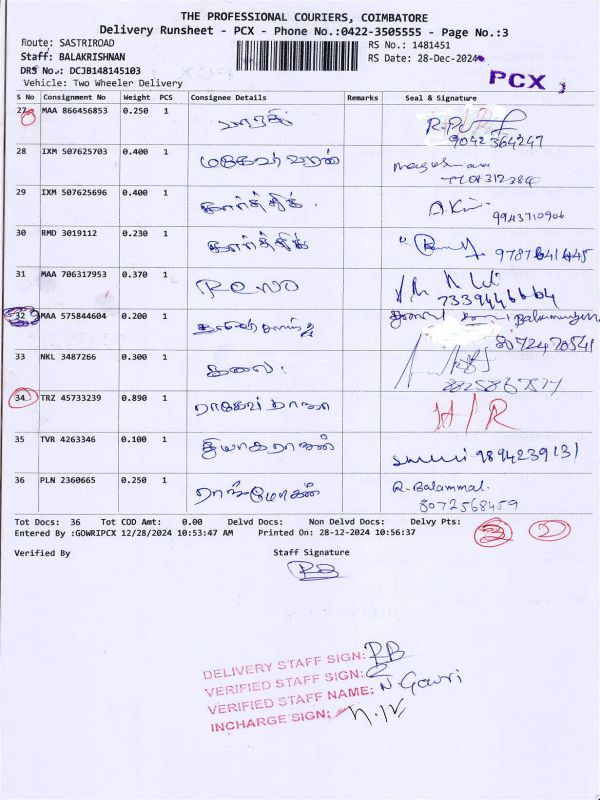 THE PROFESSIONAL COURIERS, COIMBATORE
Delivery Runsheet - PCX - Phone No.:0422-3505555 - Page No.:3
Route: SASTRIROAD RS No.: 1481451
Staff: BALAKRISHNAN RS Date: 28-Dec-2024
DRS No.: DCJB148145103
Vehicle: Two Wheeler Delivery PCX
S No Consignment No Weight PCS Consignee Details Remarks Seal & Signature
27 MAA 866456853 0.250 1
9042364247
28 IXM 507625703 0.400 1
29 IXM 507625696 0.400 1 கார்த்திக்
9943710906
30 RMD 3019112 0.230 1 கார்த்திக்
31 MAA 706317953 0.370 1
7339446664
32 MAA 575844604 0.200 1
8072470541
33 NKL 3487266 0.300 1 கலை
34 TRZ 45733239 0.890 1 H/R
35 TVR 4263346 0.100 1 தியாகராஜன் 9894239131
36 PLN 2360665 0.250 1 R. Balammal.
8072568459
Tot Docs: 36 Tot COD Amt: 0.00 Delvd Docs: Non Delvd Docs: Delvy Pts: 2
Entered By :GOWRIPCX 12/28/2024 10:53:47 AM Printed On: 28-12-2024 10:56:37
Verified By Staff Signature
RB
DELIVERY STAFF SIGN: RB
VERIFIED STAFF SIGN:
VERIFIED STAFF NAME: N. Gowri
INCHARGE SIGN: